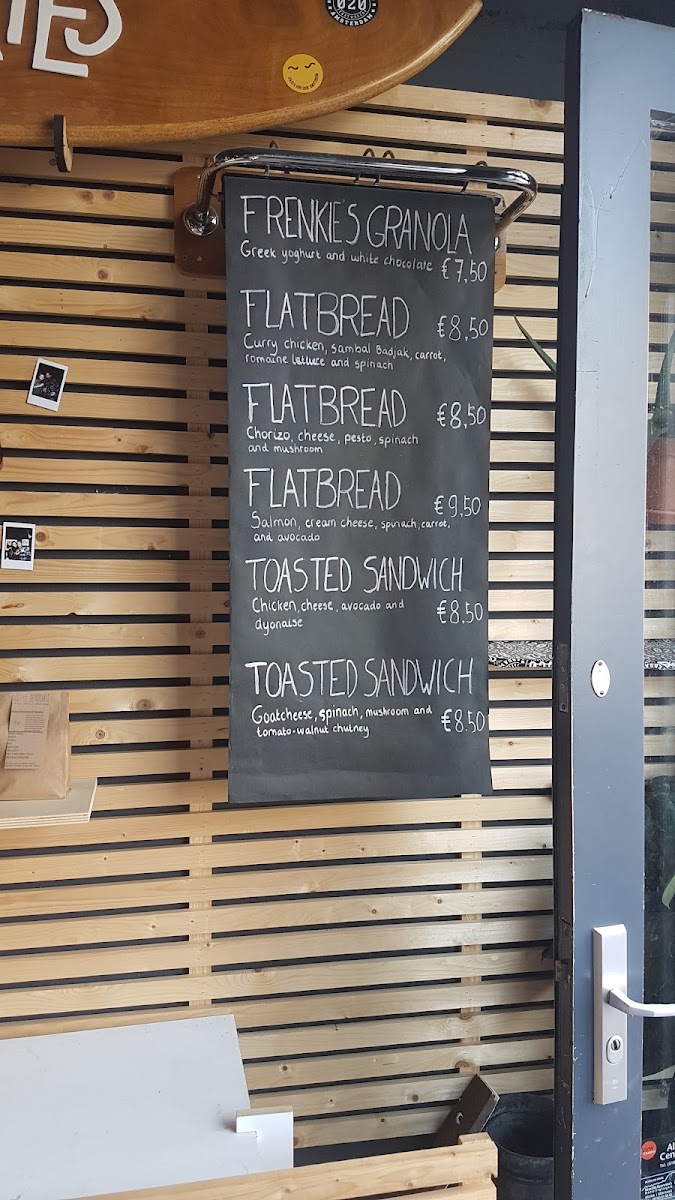 IES
020
AMSTERDAM
FRENKIE'S GRANOLA
Greek yoghurt and white chocolate €7,50
FLATBREAD €8,50
Curry chicken, sambal Badjak, carrot,
romaine lettuce and spinach
FLATBREAD €8,50
Chorizo, cheese, pesto, spinach
and mushroom
FLATBREAD €9.50
Salmon, cream cheese, spinach, carrot,
and avocado
TOASTED SANDWICH
Chicken, cheese, avocado and €8.50
dyonaise
TOASTED SANDWICH
Goatcheese, spinach, mushroom and €8.50
tomato-walnut chutney